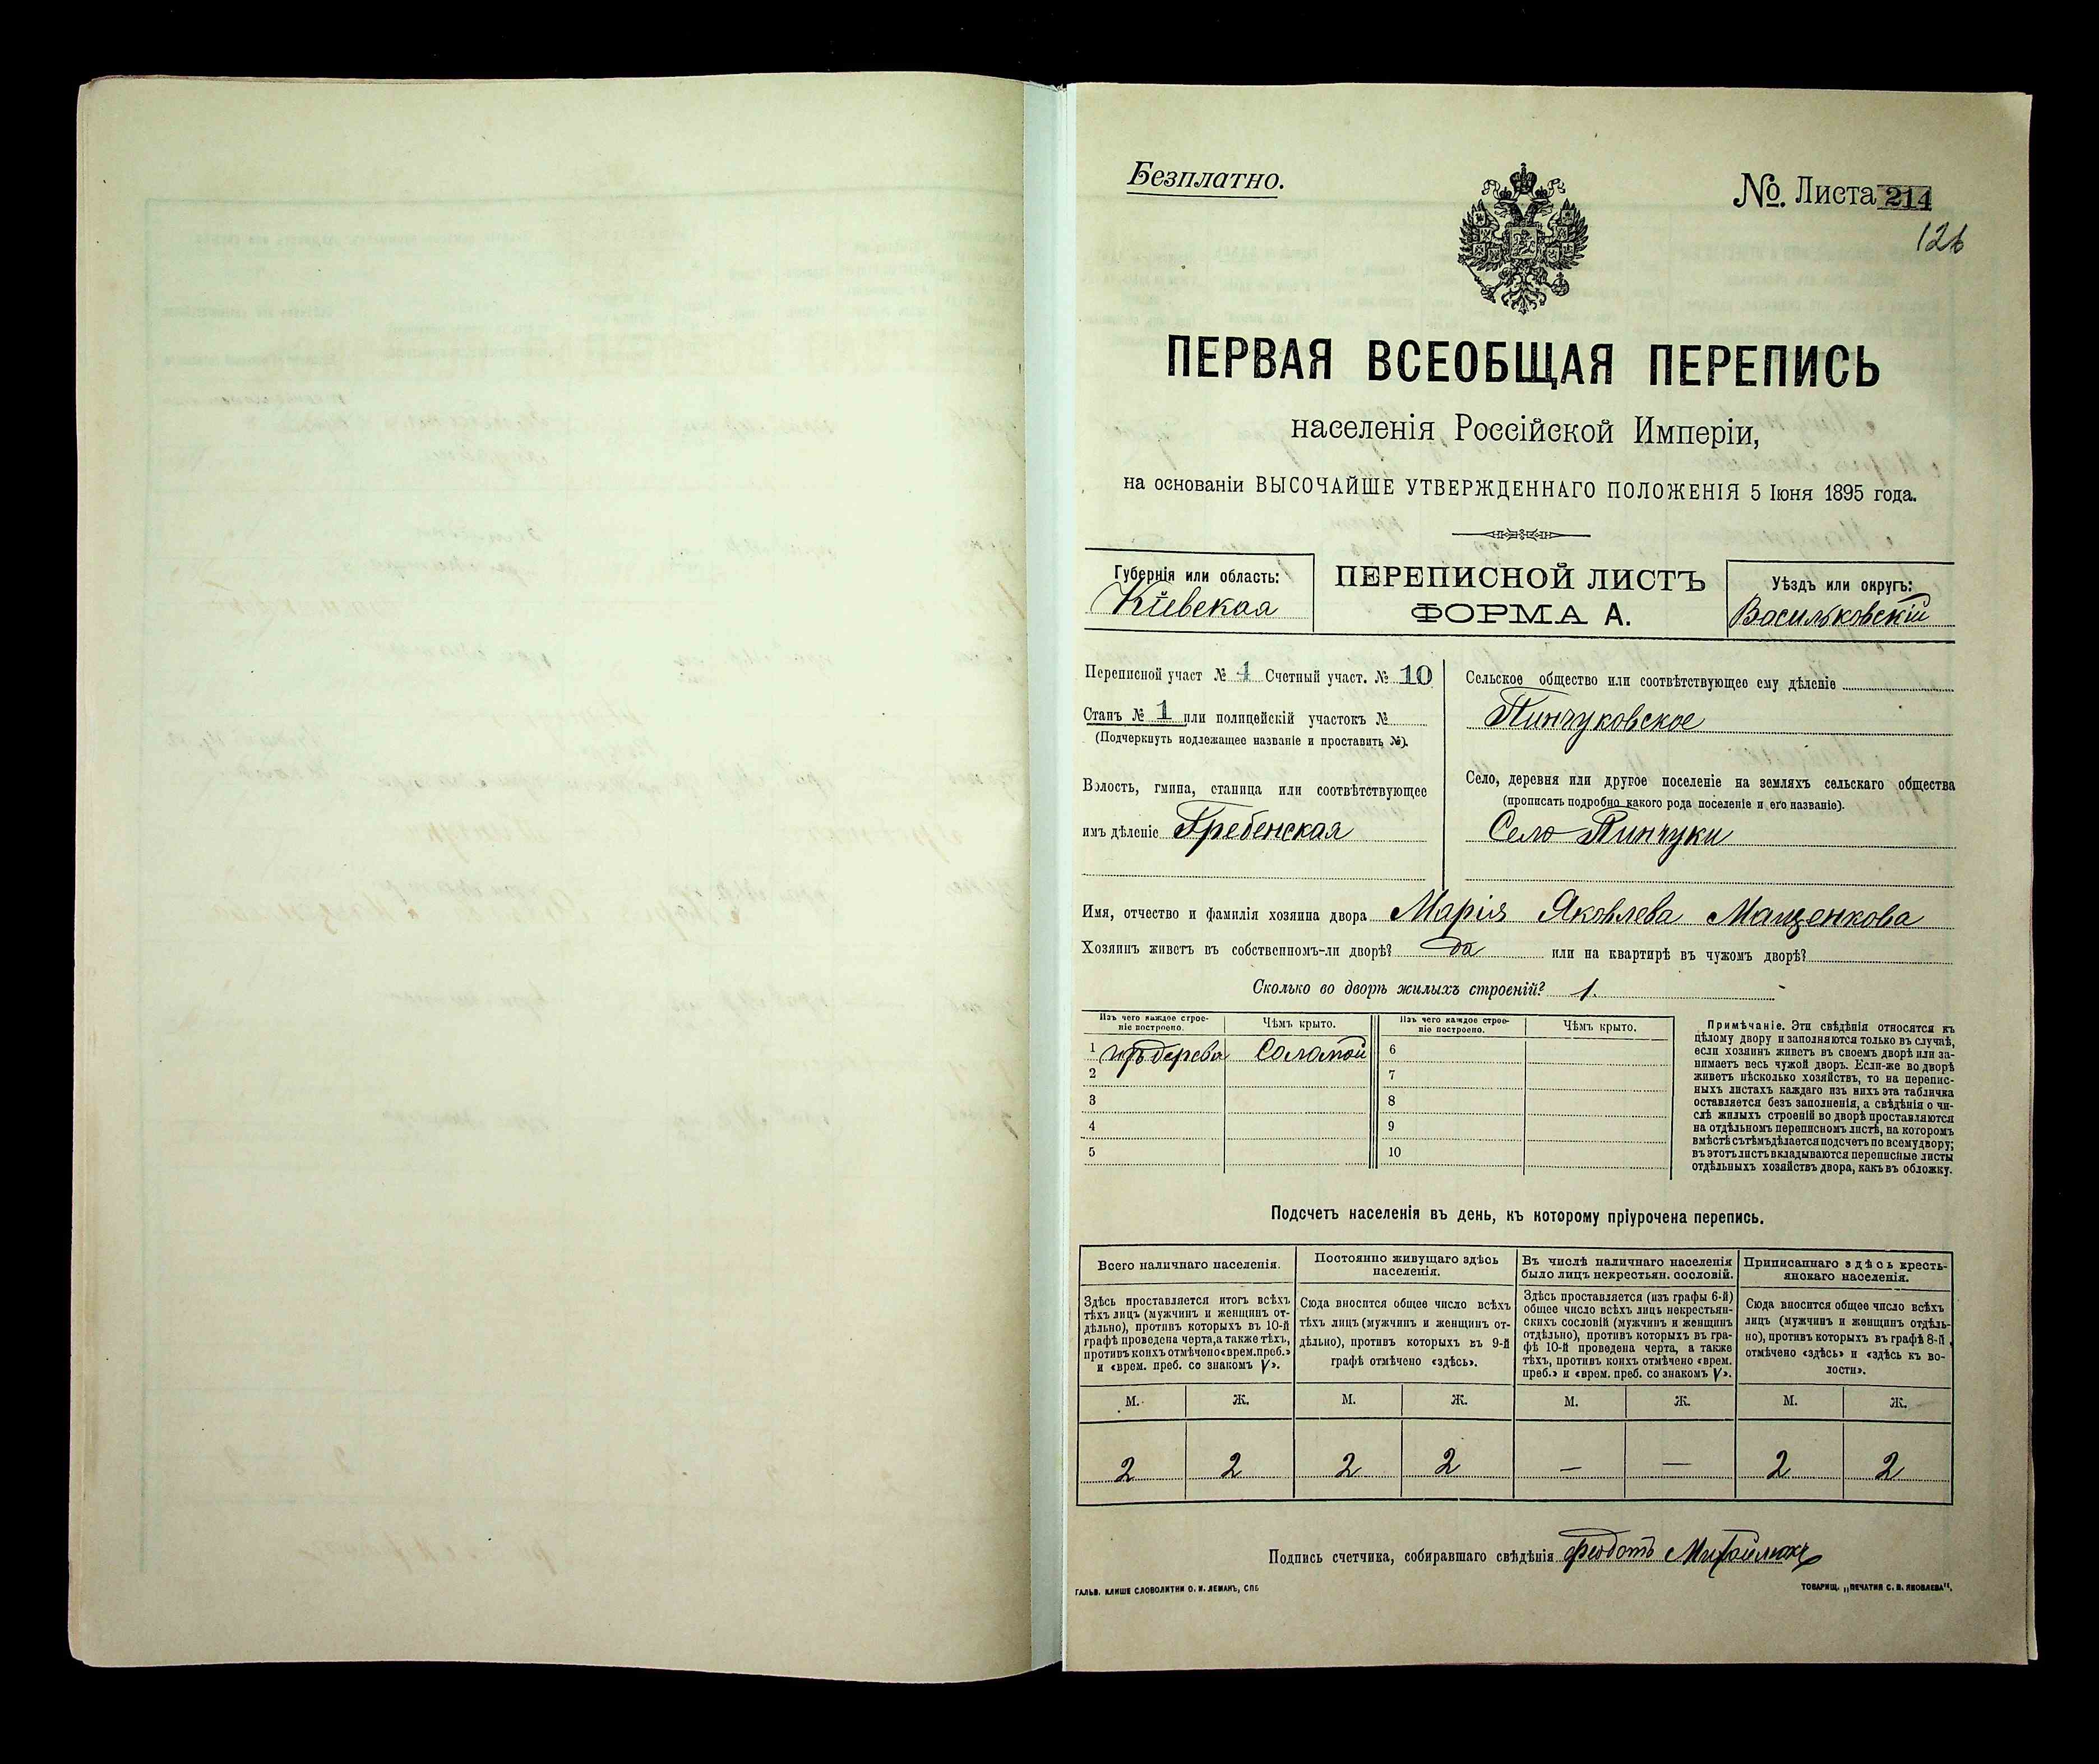 Безплатно.
№. Листа 214
126
ПЕРВАЯ ВСЕОБЩАЯ ПЕРЕПИСЬ
населенія Россійской Имперіи,
на основаніи ВЫСОЧАЙШЕ УТВЕРЖДЕННАГО ПОЛОЖЕНІЯ 5 Іюня 1895 года.
Губернія или область:
Кіевская
ПЕРЕПИСНОЙ ЛИСТЪ
ФОРМА А.
Уѣздъ или округъ:
Васильковскій
Переписной участ № 4 Счетный участ. № 10
Станъ № 1 или полицейскій участокъ №
(Подчеркнуть подлежащее названіе и проставить №).
Волость, гмина, станица или соотвѣтствующее
имъ дѣленіе Гребенская
Сельское общество или соотвѣтствующее ему дѣленіе
Пинчуковское
Село, деревня или другое поселеніе на земляхъ сельскаго общества
(прописать подробно какого рода поселеніе и его названіе).
Село Пинчуки
Имя, отчество и фамилія хозяина двора Марія Яковлева Мащенкова
Хозяинъ живетъ въ собственномъ-ли дворѣ? да или на квартирѣ въ чужомъ дворѣ?
Сколько во дворѣ жилыхъ строеній? 1.
Изъ чего каждое строе-
ніе построено.
Чѣмъ крыто.
Изъ чего каждое строе-
ніе построено.
Чѣмъ крыто.
1 изъ дерева Соломой 6
2 7
3 8
4 9
5 10
Примѣчаніе. Эти свѣдѣнія относятся къ
цѣлому двору и заполняются только въ случаѣ,
если хозяинъ живетъ въ своемъ дворѣ или за-
нимаетъ весь чужой дворъ. Если-же во дворѣ
живетъ нѣсколько хозяйствъ, то на перепис-
ныхъ листахъ каждаго изъ нихъ эта табличка
оставляется безъ заполненія, а свѣдѣнія о чи-
слѣ жилыхъ строеній во дворѣ проставляются
на отдѣльномъ переписномъ листѣ, на которомъ
вмѣстѣ съ тѣмъ дѣлается подсчетъ по всему двору;
въ этотъ листъ вкладываются переписные листы
отдѣльныхъ хозяйствъ двора, какъ въ обложку.
Подсчетъ населенія въ день, къ которому пріурочена перепись.
Всего наличнаго населенія.
Здѣсь проставляется итогъ всѣхъ
тѣхъ лицъ (мужчинъ и женщинъ от-
дѣльно), противъ которыхъ въ 10-й
графѣ проведена черта, а также тѣхъ,
противъ коихъ отмѣчено «врем. преб.»
и «врем. преб. со знакомъ V».
Постоянно живущаго здѣсь
населенія.
Сюда вносится общее число всѣхъ
тѣхъ лицъ (мужчинъ и женщинъ от-
дѣльно), противъ которыхъ въ 9-й
графѣ отмѣчено «здѣсь».
Въ числѣ наличнаго населенія
было лицъ некрестьян. сословій.
Здѣсь проставляется (изъ графы 6-й)
общее число всѣхъ лицъ некрестьян-
скихъ сословій (мужчинъ и женщинъ
отдѣльно), противъ которыхъ въ гра-
фѣ 10-й проведена черта, а также
тѣхъ, противъ коихъ отмѣчено «врем.
преб.» и «врем. преб. со знакомъ V».
Приписаннаго здѣсь кресть-
янскаго населенія.
Сюда вносится общее число всѣхъ
лицъ (мужчинъ и женщинъ отдѣль-
но), противъ которыхъ въ графѣ 8-й
отмѣчено «здѣсь» и «здѣсь къ во-
лости».
М. Ж. М. Ж. М. Ж. М. Ж.
2 2 2 2 — — 2 2
Подпись счетчика, собиравшаго свѣдѣнія Феодотъ
ГАЛЬВ. КЛИШЕ СЛОВОЛИТНИ О. И. ЛЕМАНЪ, СПБ
ТОВАРИЩ. „ПЕЧАТНЯ С. П. ЯКОВЛЕВА“.